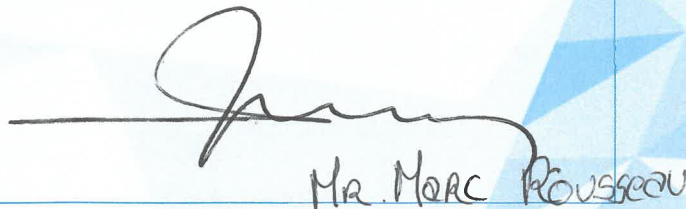 MR. MARC ROUSSEAU